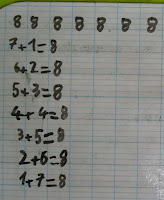 8 8 8 8 8 8 8
7+1=8
6+2=8
5+3=8
4+4=8
3+5=8
2+6=8
1+7=8